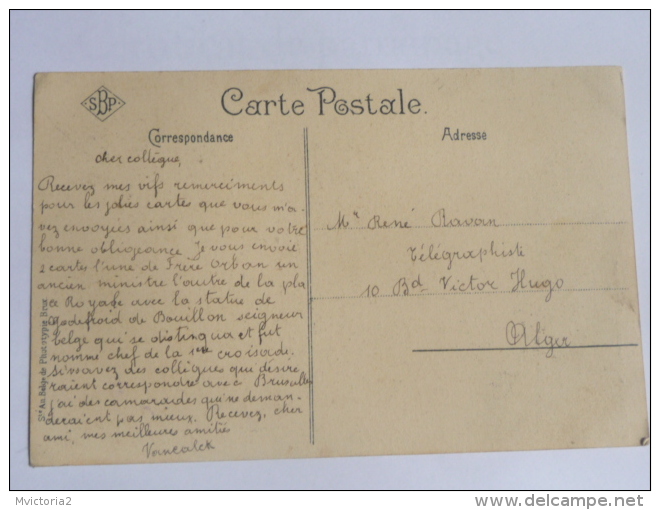 SBP
Carte Postale.
Correspondance
Adresse
cher collègue,
Recevez mes vifs remerciments
pour les jolies cartes que vous m'a-
vez envoyées ainsi que pour votre
bonne obligeance. Je vous envoie
2 cartes l'une de Frère Orban un
ancien ministre l'autre de la pla
ce Royale avec la statue de
Godefroid de Bouillon seigneur
belge qui se distingua et fut
nommé chef de la 1ère croisade.
Si vous avez des collègues qui désire
raient correspondre avec Bruxelles
j'ai des camarades qui ne deman-
deraient pas mieux. Recevez, cher
ami, mes meilleures amitiés
Mr René Ravan
Télégraphiste
10 Bd Victor Hugo
Alger
Sté An. Belge de Phototypie, Brux.
Mvictoria2
delcampe.net